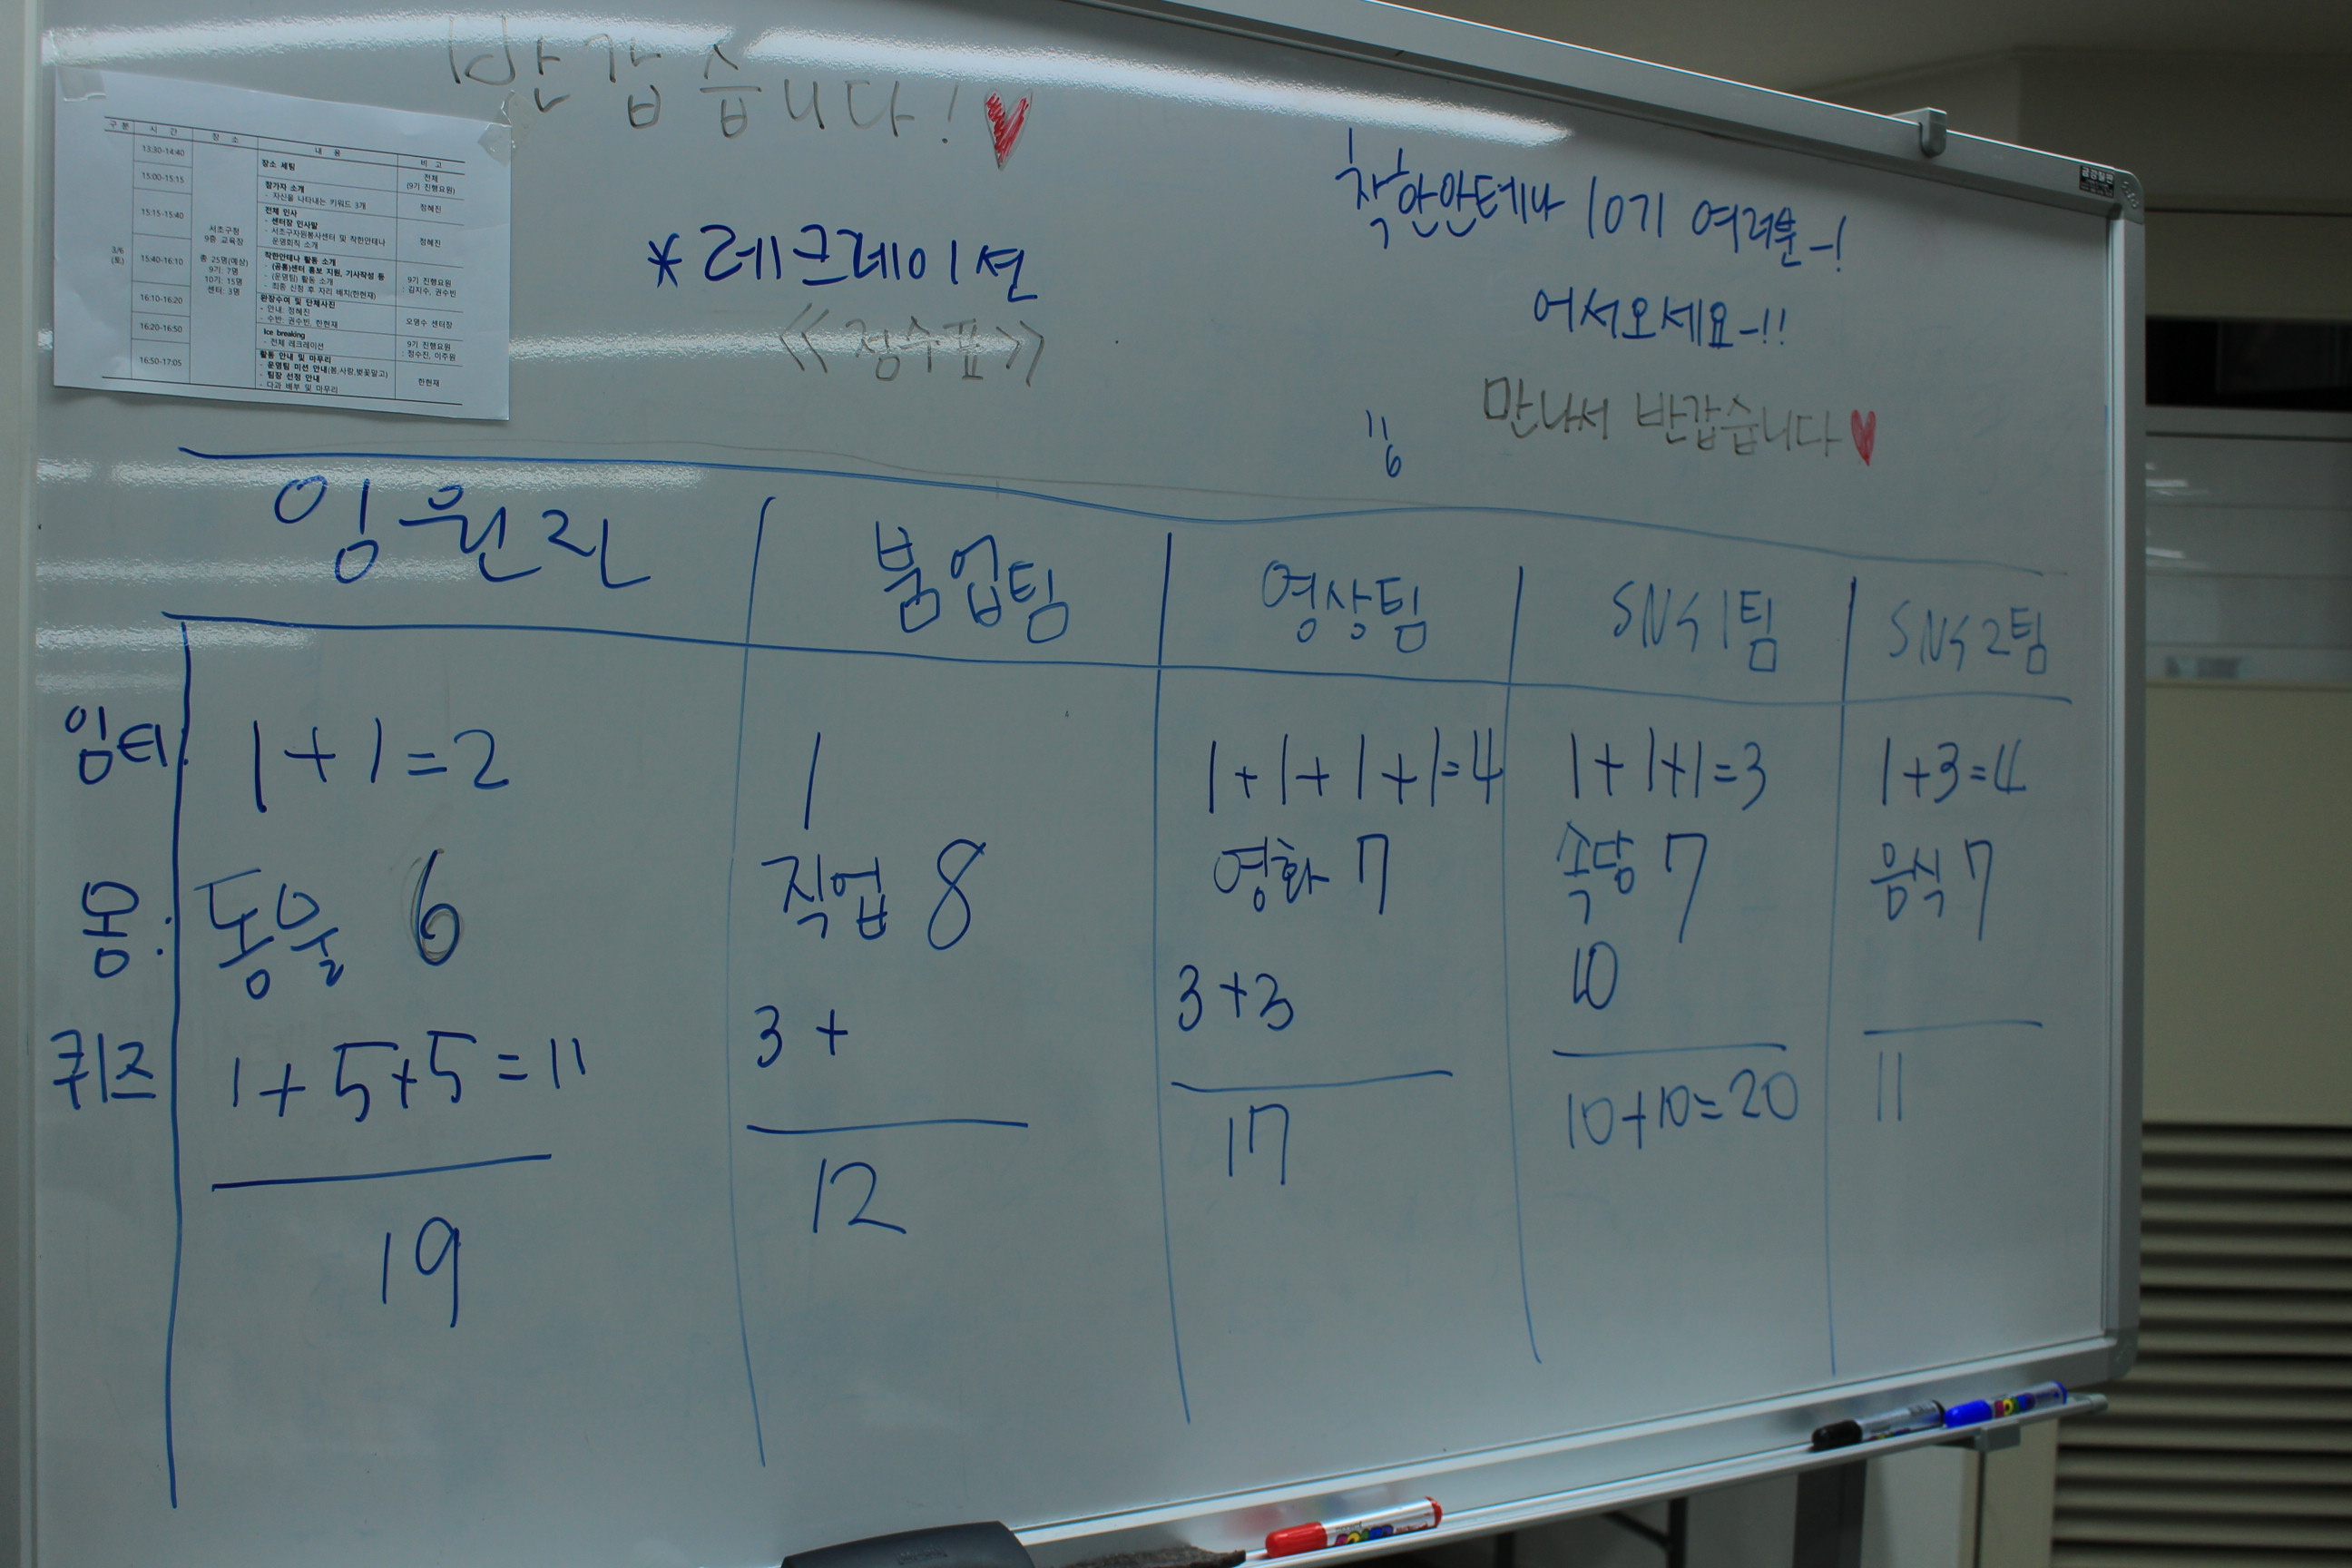 반갑습니다!
구 분 시 간 장 소 내 용 비 고
3/6
(토)
서초구청
9층 교육장
총 25명(예상)
9기: 7명
10기: 15명
센터: 3명
13:30-14:40 장소 세팅 전체
(9기 진행요원)
15:00-15:15 참가자 소개
- 자신을 나타내는 키워드 3개 정혜진
15:15-15:40 전체 인사
- 센터장 인사말
- 서초구자원봉사센터 및 착한안테나
운영회칙 소개 정혜진
15:40-16:10 착한안테나 활동 소개
- (공통)센터 홍보 지원, 기사작성 등
- (운영팀) 활동 소개
- 최종 신청 후 자리 배치(한현재) 9기 진행요원
: 김지수, 권수빈
16:10-16:20 완장수여 및 단체사진
- 안내: 정혜진
- 수반: 권수빈, 한현재 오영수 센터장
16:20-16:50 Ice breaking
- 전체 레크레이션 9기 진행요원
: 정수진, 이주원
16:50-17:05 활동 안내 및 마무리
- 운영팀 미션 안내(봄,사람,벚꽃말고)
- 팀장 선정 안내
- 다과 배부 및 마무리 한현재
*레크레이션
<<점수표>>
착한안테나 10기 여러분-!
어서오세요-!!
만나서 반갑습니다
11
6
임원진 붐업팀 영상팀 SNS1팀 SNS2팀
임티: 1+1=2 1 1+1+1+1=4 1+1+1=3 1+3=4
몸: 동물 6 직업 8 영화 7 속담 7 음식 7
퀴즈 1+5+5=11 3+ 3+3 10
19 12 17 10+10=20 11